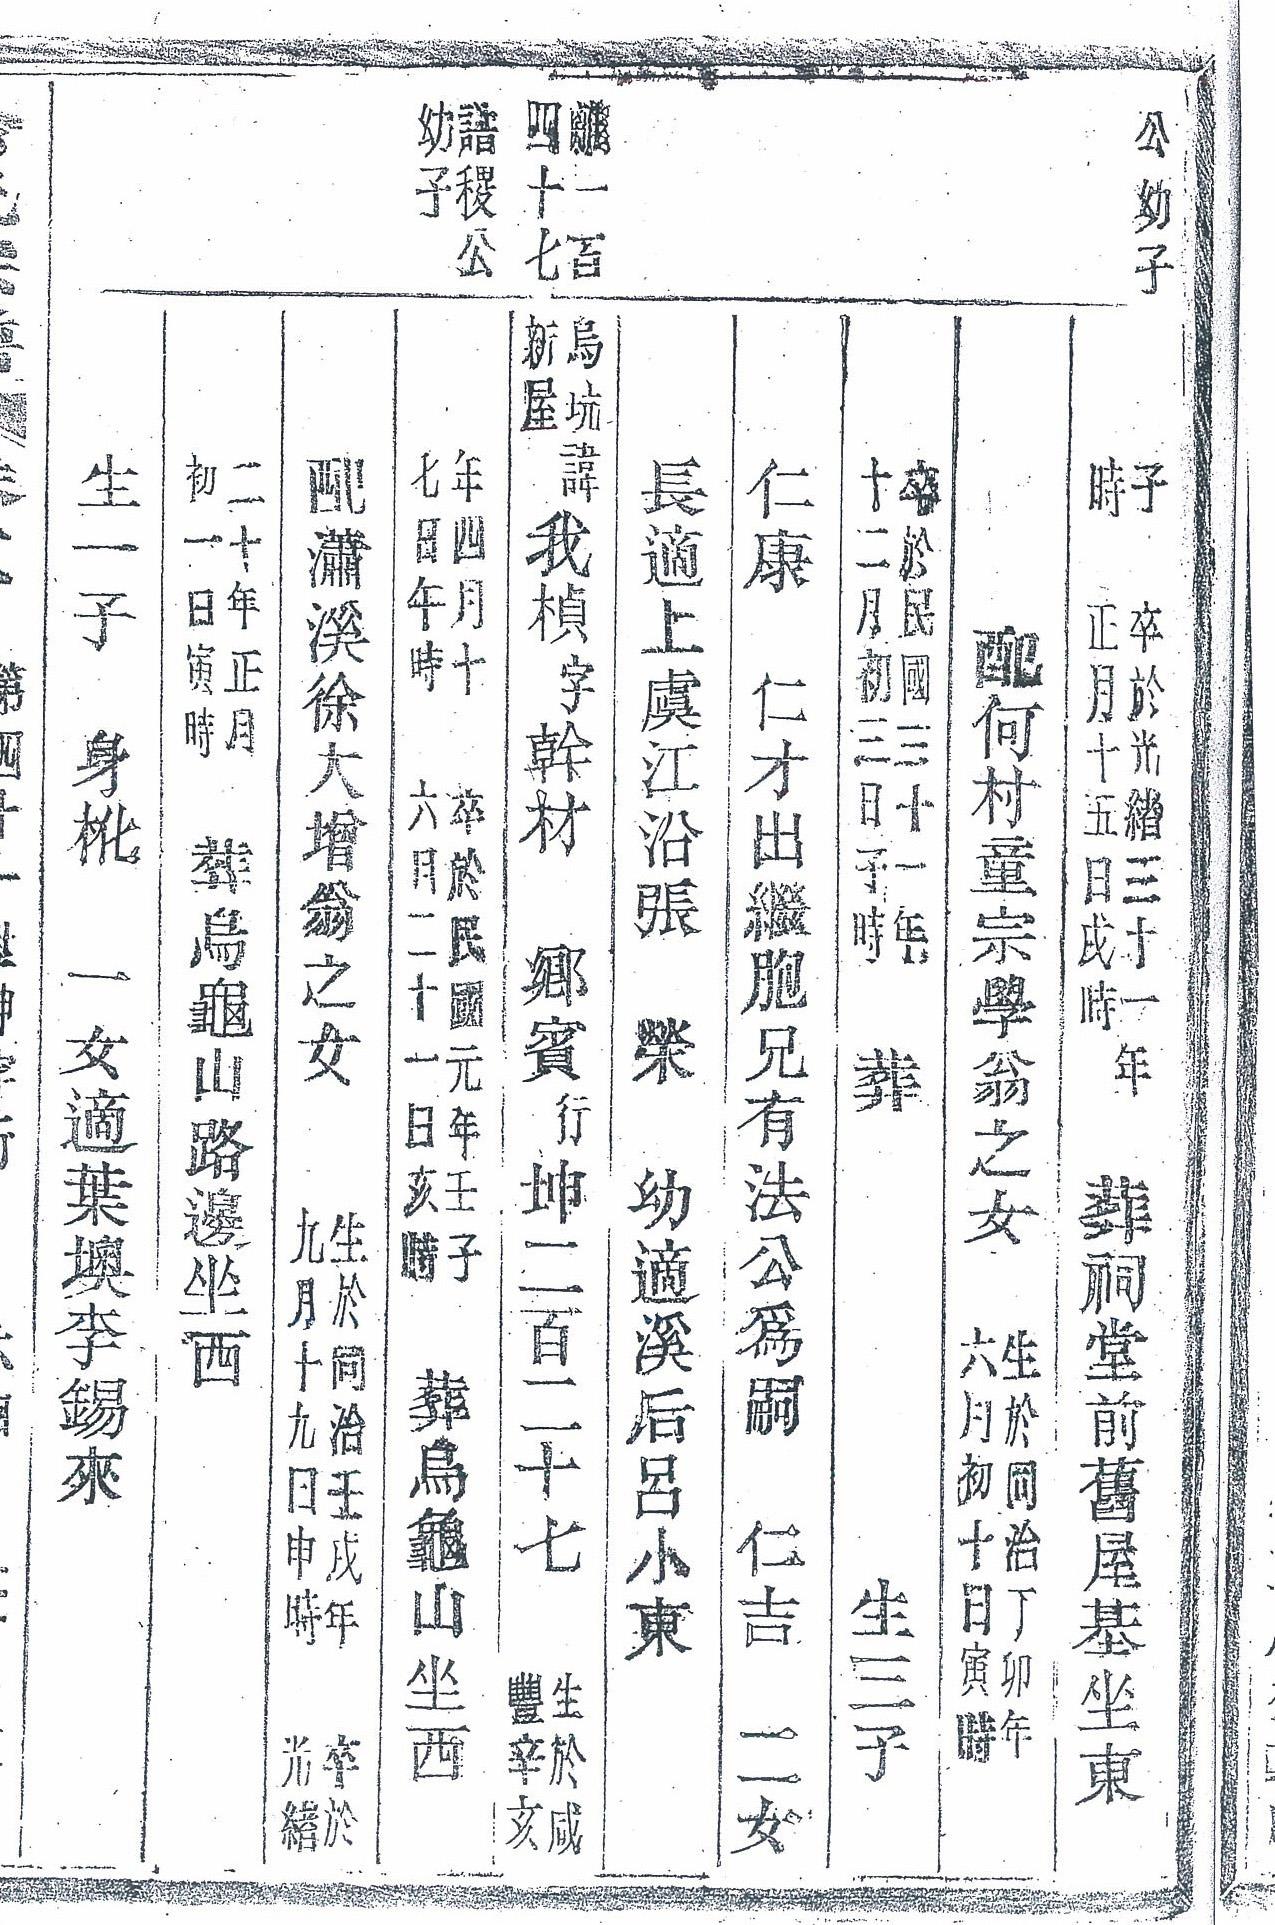 公幼子
子時 卒於光緒三十一年正月十五日戌時 葬祠堂前舊屋基坐東
配何村童宗學翁之女 生於同治丁卯年六月初十日寅時
卒於民國三十一年十二月初三日子時 葬 生三子
仁康 仁才出繼胞兄有法公爲嗣 仁吉 二女
長適上虞江沿張 榮 幼適溪后呂小東
一百四十七
烏坑新屋 諱我楨字幹材 鄉賓行坤二百二十七 生於咸豐辛亥
諧稷公幼子
年四月十七日午時 卒於民國元年壬子六月二十一日亥時 葬烏龜山坐西
配瀟溪徐大增翁之女 生於同治壬戌年九月十九日申時 卒於光緒
二十年正月初一日寅時 葬烏龜山路邊坐西
生一子 身枇 一女適葉墺李錫來